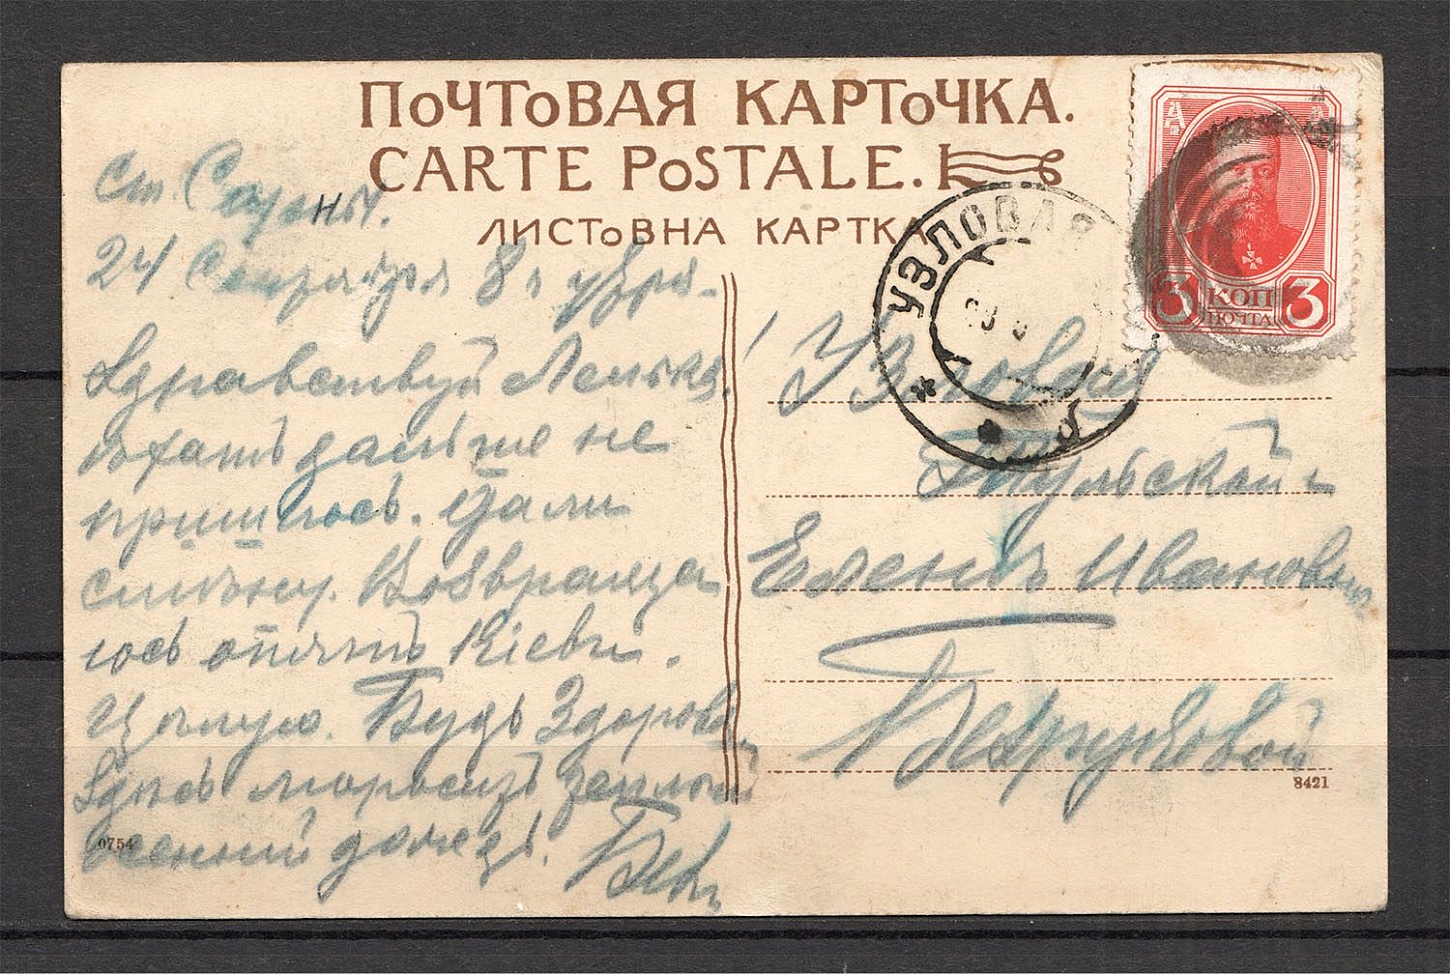 ПОЧТОВАЯ КАРТОЧКА.
CARTE POSTALE.
ЛИСТОВНА КАРТКА
ст. Сарны.
24 Сентября 8 ч утра.
Здравствуй Ленька!
ѣхать дальше не
пришлось. Дали
смѣну. Возвраща
юсь опять Кіевъ.
Цѣлую. Будь здорова.
Здѣсь моросит
осенний дождь.
0754
УЗЛОВАЯ
3 КОП 3
ПОЧТА
Узловая
Тульской г
Еленѣ Ивановнѣ
8421